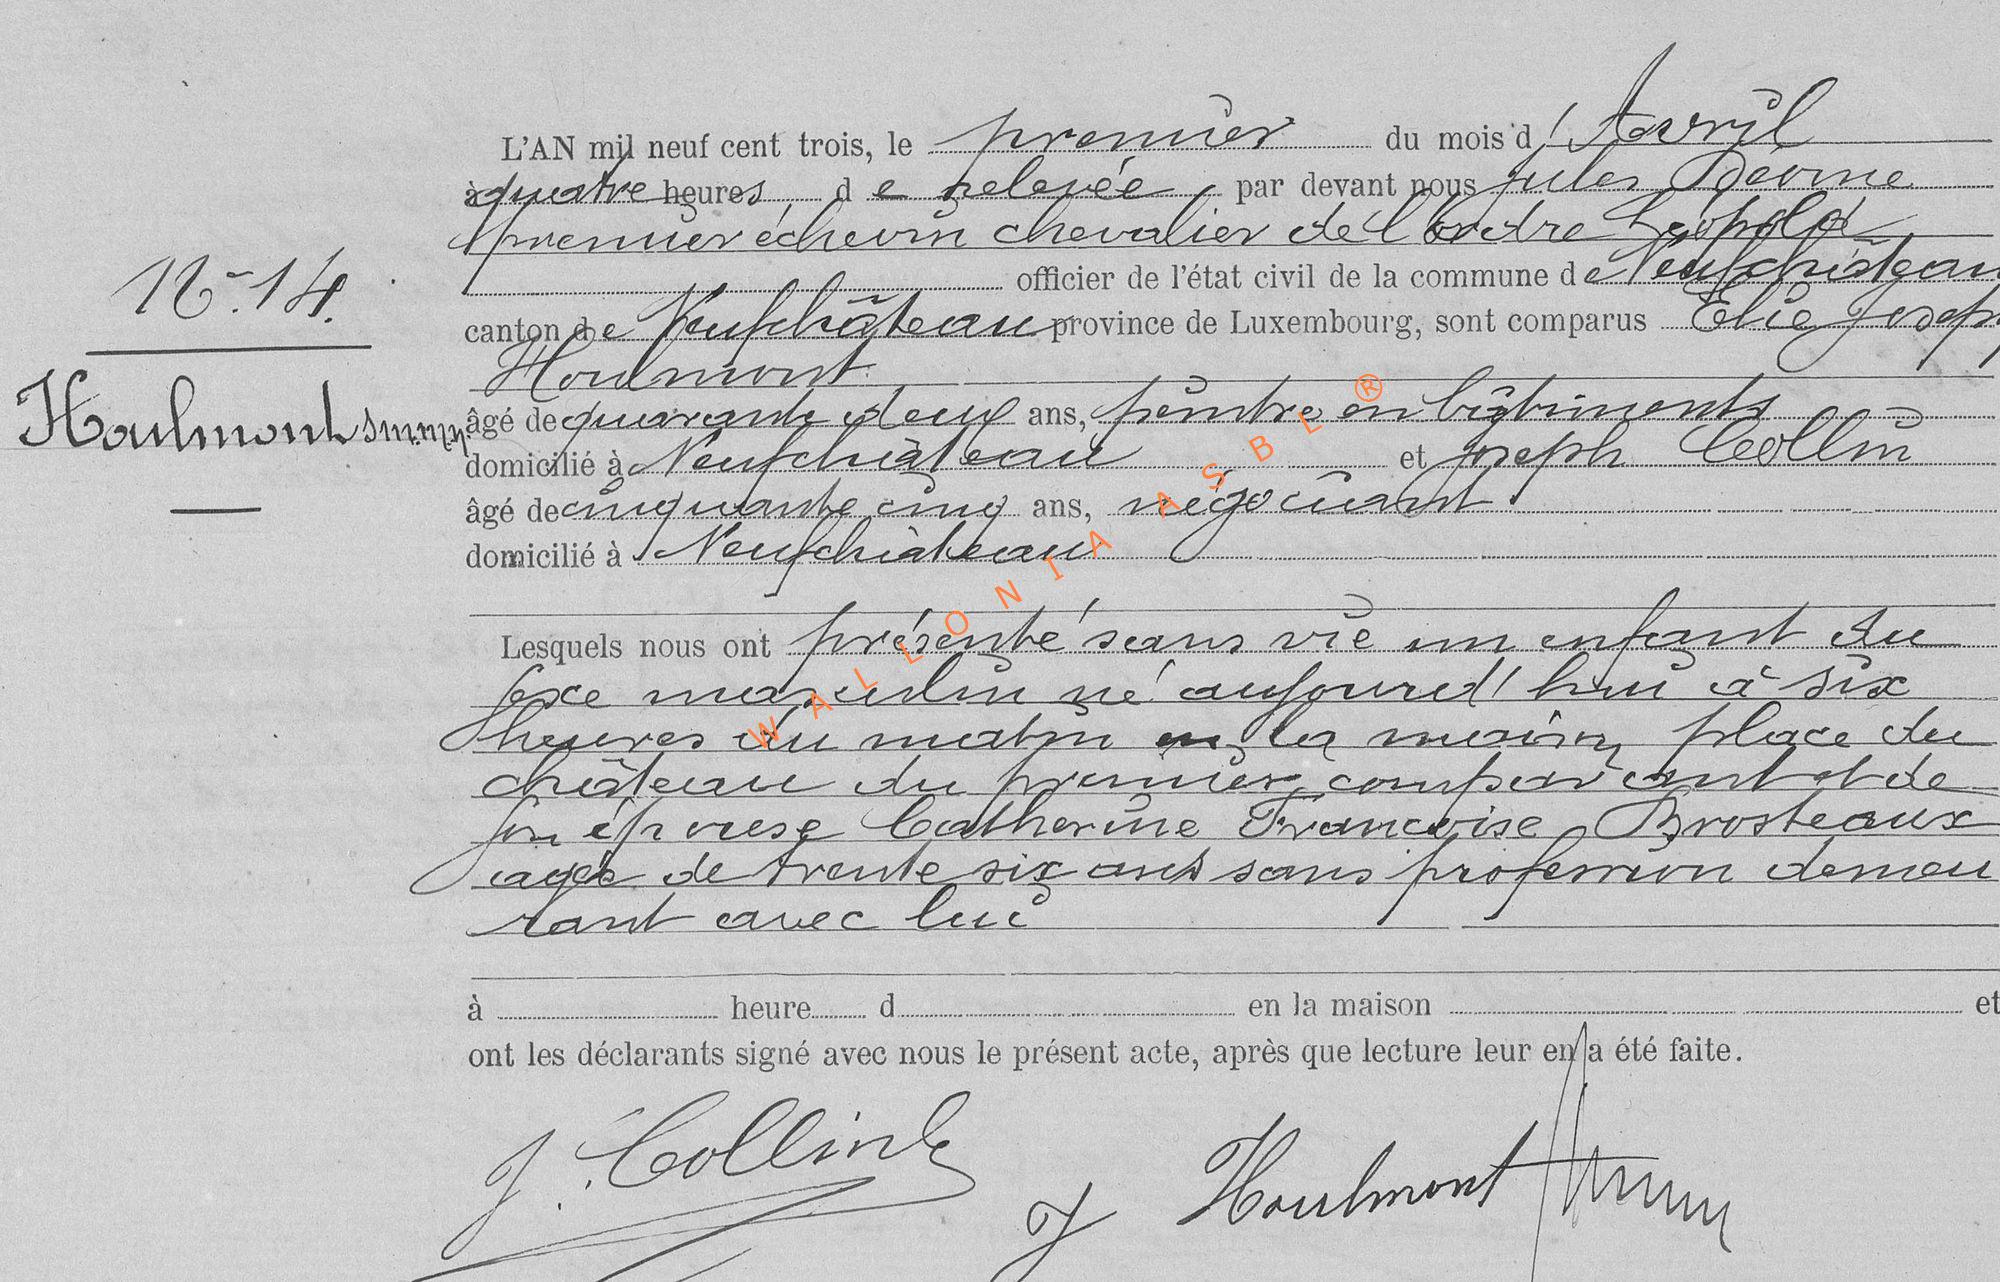 L'AN mil neuf cent trois, le premier du mois d'Avril
à quatre heures, de relevée, par devant nous Jules Devine
premier échevin chevalier de l'ordre Léopold
officier de l'état civil de la commune de Neufchâteau
N° 14.
canton de Neufchâteau province de Luxembourg, sont comparus Elie Joseph
Houlmont
Houlmont
âgé de quarante deux ans, peintre en bâtiments
domicilié à Neufchâteau et Joseph Collin
âgé de cinquante cinq ans, négociant
domicilié à Neufchâteau
Lesquels nous ont présenté sans vie un enfant du
sexe masculin né aujourd'hui à six
heures du matin en la maison place du
château du premier comparant et de
son épouse Catherine Françoise Brosteaux
agée de trente six ans sans profession demeu
rant avec lui
à heure d en la maison et
ont les déclarants signé avec nous le présent acte, après que lecture leur en a été faite.
J. Collin
J Houlmont
WALLONIA ASBL ®